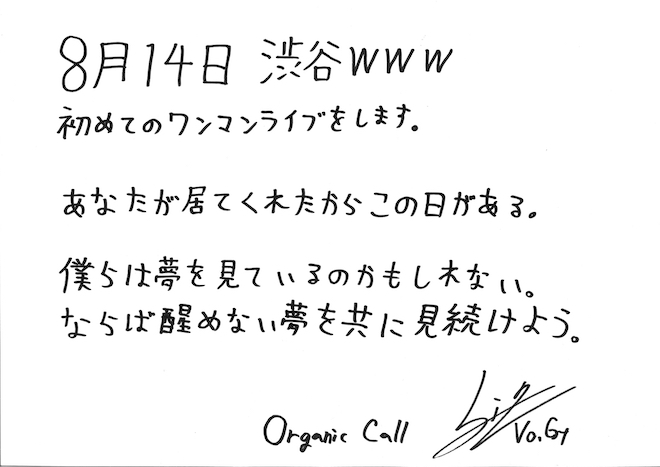 8月14日 渋谷WWW
初めてのワンマンライブをします。
あなたが居てくれたからこの日がある。
僕らは夢を見ているのかもしれない。
ならば醒めない夢を共に見続けよう。
Organic Call
Vo.Gt